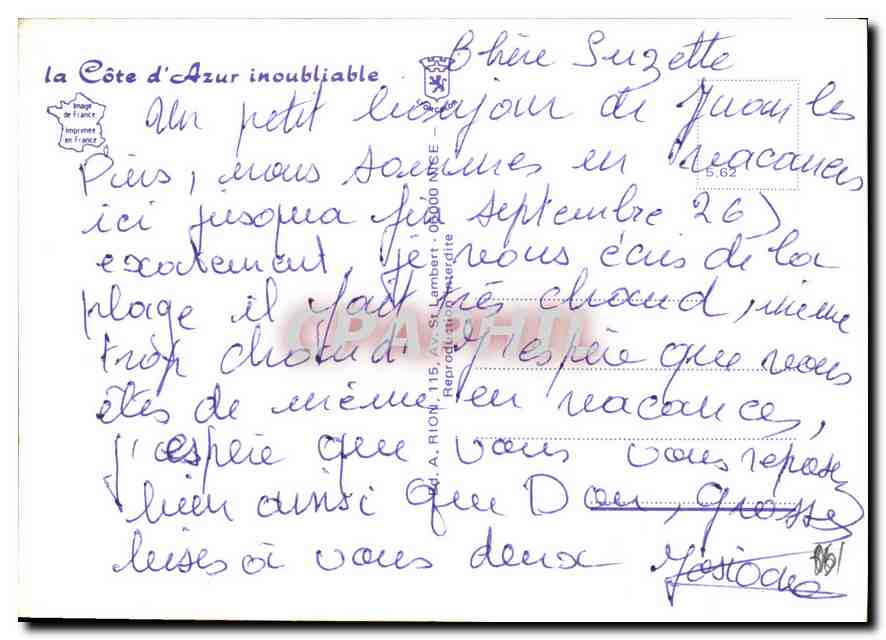 la Côte d'Azur inoubliable
Image
de France
Imprimée
en France
5,62
Ed. A. RION, 115, Av. St Lambert - 06000 NICE -
Reproduction interdite
CPAPHIL
Chère Suzette
Un petit bonjour de Juan les
Pins, nous sommes en vacances
ici jusqua fin septembre 26)
exactement, je vous écris de la
plage il fait très chaud, même
trop chaud. J'espère que vous
êtes de même en vacances,
j'espère que vous vous reposez
bien ainsi que Dan, grosses
bises à vous deux Josiane